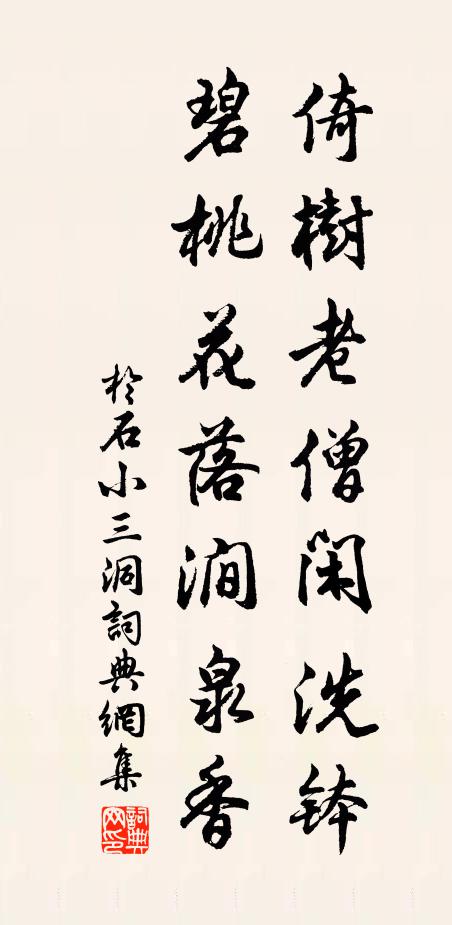 倚樹老僧閑洗鉢
碧桃花落澗泉香
於石小三洞詞典網集
詞典网印